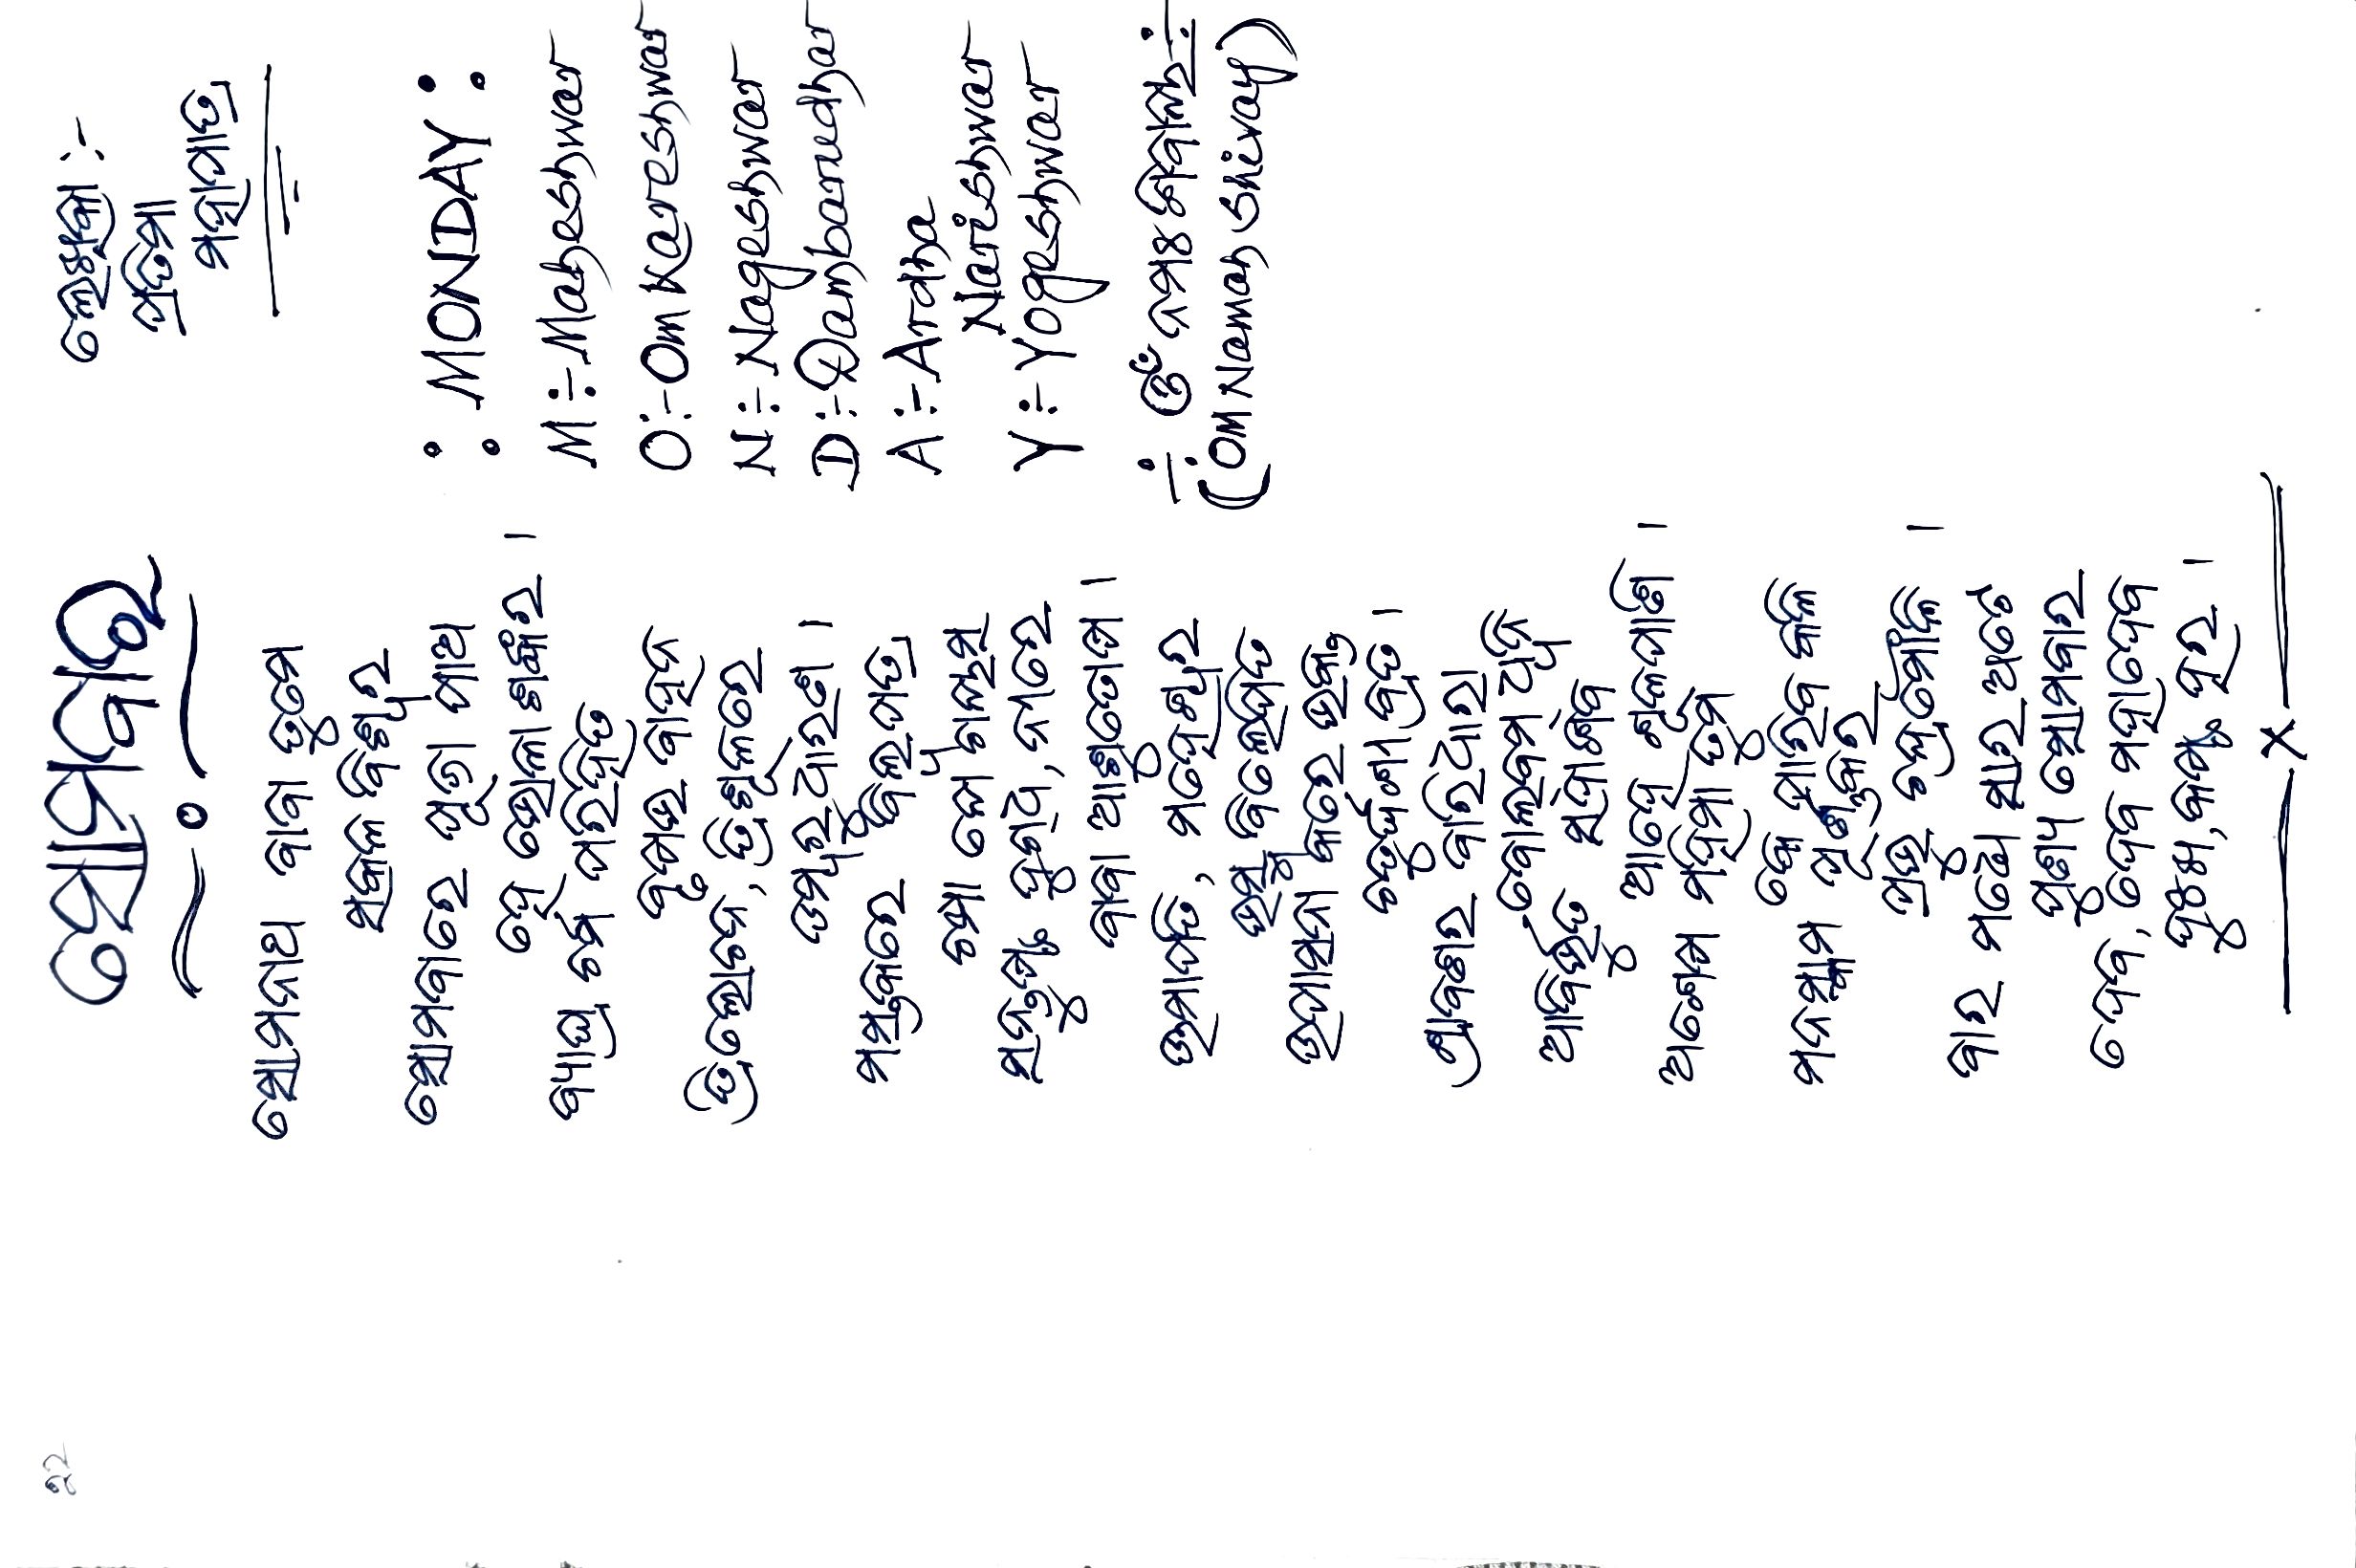 ୨୨
ସୋମବାର
ଲେଖିକା :-
ପ୍ରତିମା
ମହାପାତ୍ର
ସୋମନାଥ ବାବା ତୁମେ
ସକଳ ବିଶ୍ୱର
ସୋମବାରେ ପୂଜା ପାଅ
ହେ ଭୋଳା ଶଙ୍କର ।
ବ୍ୟାଘ୍ର ଚର୍ମ ପରିହିତ
ବୃଷଭ ବାହନ
ତ୍ରିଲୋଚନ, ତ୍ରିଶୂଳରେ
ଡମ୍ବରୁ ଧାରଣ ।
ମସ୍ତକରେ ବିଲ୍ୱପତ୍ର
ଚମ୍ପା ଲୋ ଗଲ୍ଲସ
ସନ୍ତୁଷ୍ଟ ଦୁଗ୍ଧ, ନୀରେ
ବାବା ଆଶୁତୋଷ ।
ଉମାପତି, ମହେଶ୍ୱର
ଭସ୍ମ ବିଲେପିତ
ଉପାସନା କରେ ଭକ୍ତ
ଚତୁର୍ଦ୍ଦଶୀ ବ୍ରତ ।
ଶ୍ରାବଣର ବାରିଧାରା
ବୋଲ୍‌ବମ୍ ଧ୍ୱନି
ଆବିର୍ଭୁତ ସଦାଶିବ
ଆହେ ଶୂଳପାଣି ।
ଅଶେଷ ମହିମା ତୁମ
କେ ପାରିବ କଳି
ମନସ୍କାମ ପୂର୍ଣ୍ଣକର
ପ୍ରଭୁ ଚନ୍ଦ୍ରମୌଳି ।
ବାର ମଧ୍ୟେ ସାର ଅଟେ
ପୁଣ୍ୟ ସୋମବାର
ଦେବ, ଦେବ ମହାଦେବ
ଦୁଃଖ, କଷ୍ଟ ହର ।
: MONDAY :
M :- Maheshwar
O :- Om Kareshwar
N :- Nageshwar
D :- Dambarudhar
A :- Ardha
Narishwar
Y :- Yogeshwar
÷ ଓଁ ନମଃ ଶିବାୟ ÷
(OM Namah Shivay)